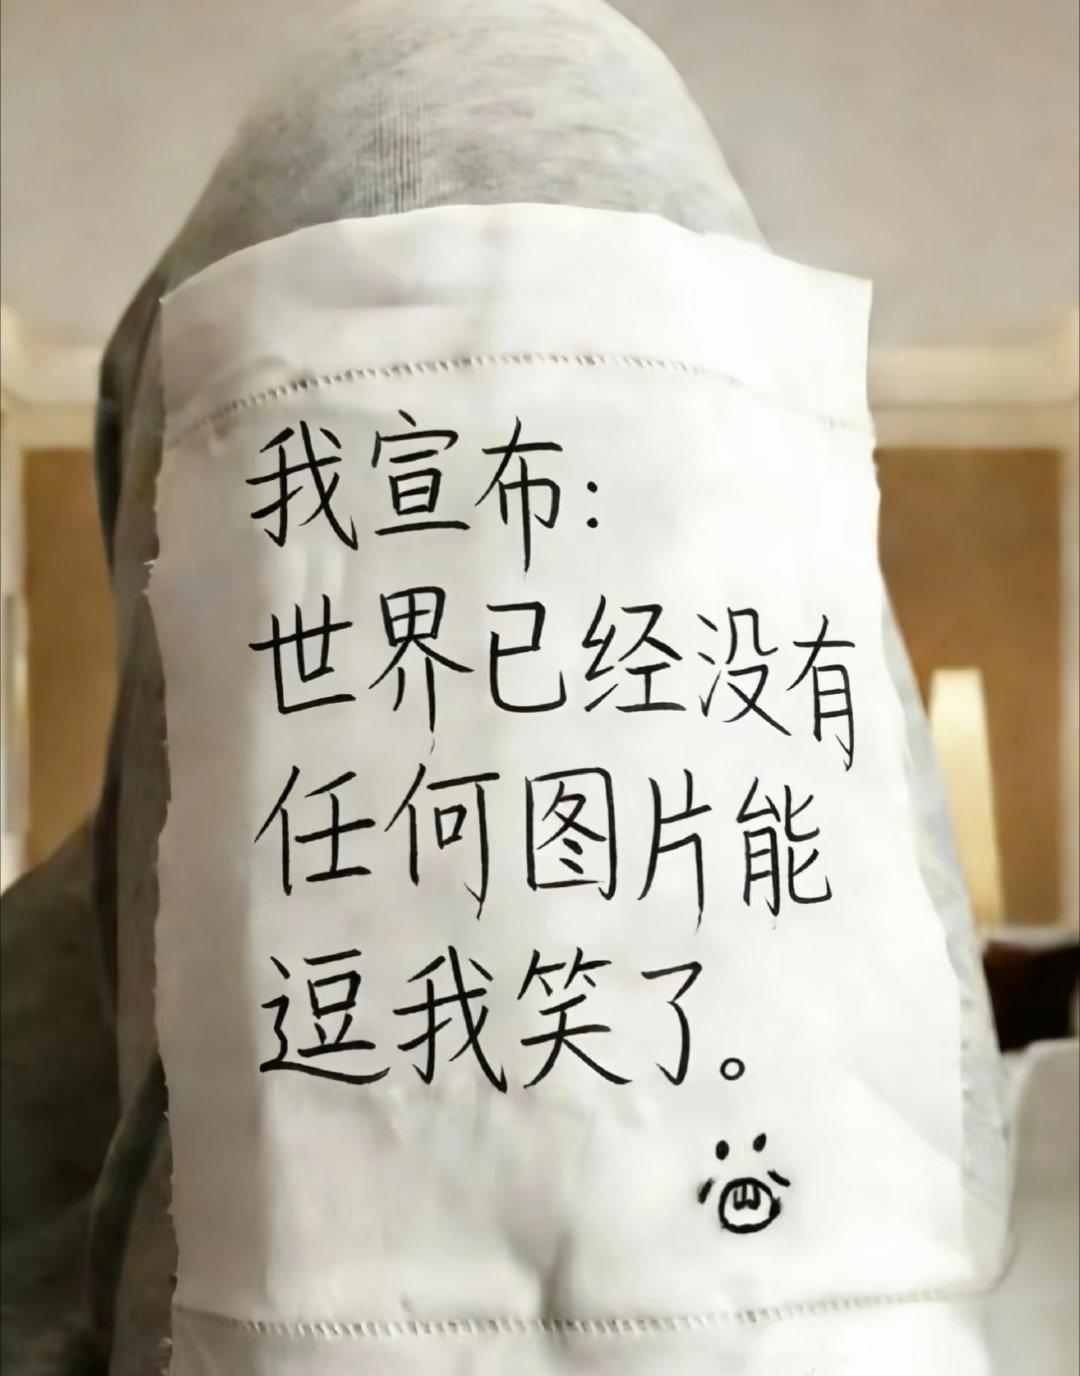 我宣布:
世界已经没有
任何图片能
逗我笑了。